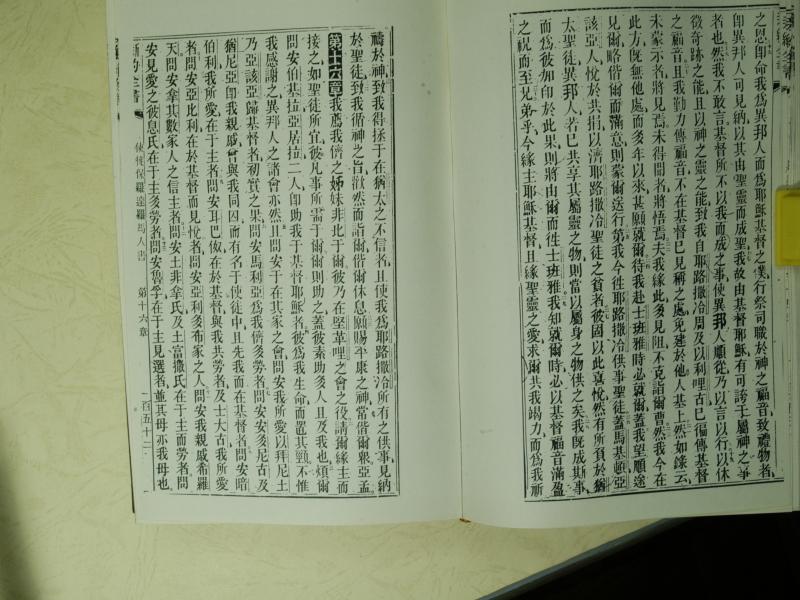 之恩卽命我爲異邦人而爲耶穌基督之僕行祭司職於神之福音致禮物者
卽異邦人可見納以其由聖靈而成聖我故由基督耶穌有可誇于屬神之事
者也然我不敢言基督所不以我而成之事使異邦人順從乃以言以行以休
徵奇跡之能且以神之靈之能致我自耶路撒冷周及以利哩古巳徧傳基督
之福音且我勤力傳福音不在基督巳見稱之處免建於他人基上然如錄云
未蒙示者將見焉未得聞者將悟焉夫我緣此多見阻不克詣爾曹然我今在
此方旣無他處而多年以來甚願就爾待我赴士班雅時必就爾蓋我望順途
見爾略偕爾而滿意則蒙爾送行第我今往耶路撒冷供事聖徒蓋馬基頓亞
該亞人悅於共捐以濟耶路撒冷聖徒之貧者彼固以此喜悅然有所負於猶
太聖徒異邦人若巳共享其屬靈之物則當以屬身之物供之矣我旣成斯事
而爲彼加印於此果則將由爾而往士班雅我知就爾時必以基督福音滿盈
之祝而至兄弟乎今緣主耶穌基督且緣聖靈之愛求爾共我竭力而爲我祈
禱於神致我得拯于在猶太之不信者且使我爲耶路撒冷所有之供事見納
於聖徒致我循神之旨歡然而詣爾偕爾休息願賜平康之神常偕爾衆亞孟
第十六章我薦我儕之姊妹非北于爾彼乃在堅革哩之會之役請爾緣主而
接之如聖徒所宜彼凡事所需于爾爾則助之蓋彼素助多人且及我也煩爾
問安伯基拉亞居拉二人卽助我于基督耶穌者彼爲我生命而置其頸不惟
我感謝之異邦人之諸會亦然且問安于在其家之會問安我所愛以拜尼土
乃亞該亞歸基督者初實之果問安馬利亞爲我儕多勞者問安安多尼古及
猶尼亞卽我親戚曾與我同囚而有名于使徒中且先我而在基督者問安暗
伯利我所愛在于主者問安耳巴倣在於基督與我共勞者及士大古我所愛
者問安亞比利在於基督而見悅者問安亞利多布家之人問安我親戚希羅
天問安拿其數家人之信主者問安土非拿氏及土富撒氏在于主而勞者問
安見愛之彼息氏在于主多勞者問安魯孚在于主見選者並其母亦我母也
新約全書
使徒保羅達羅馬人書
第十六章
一百五十二